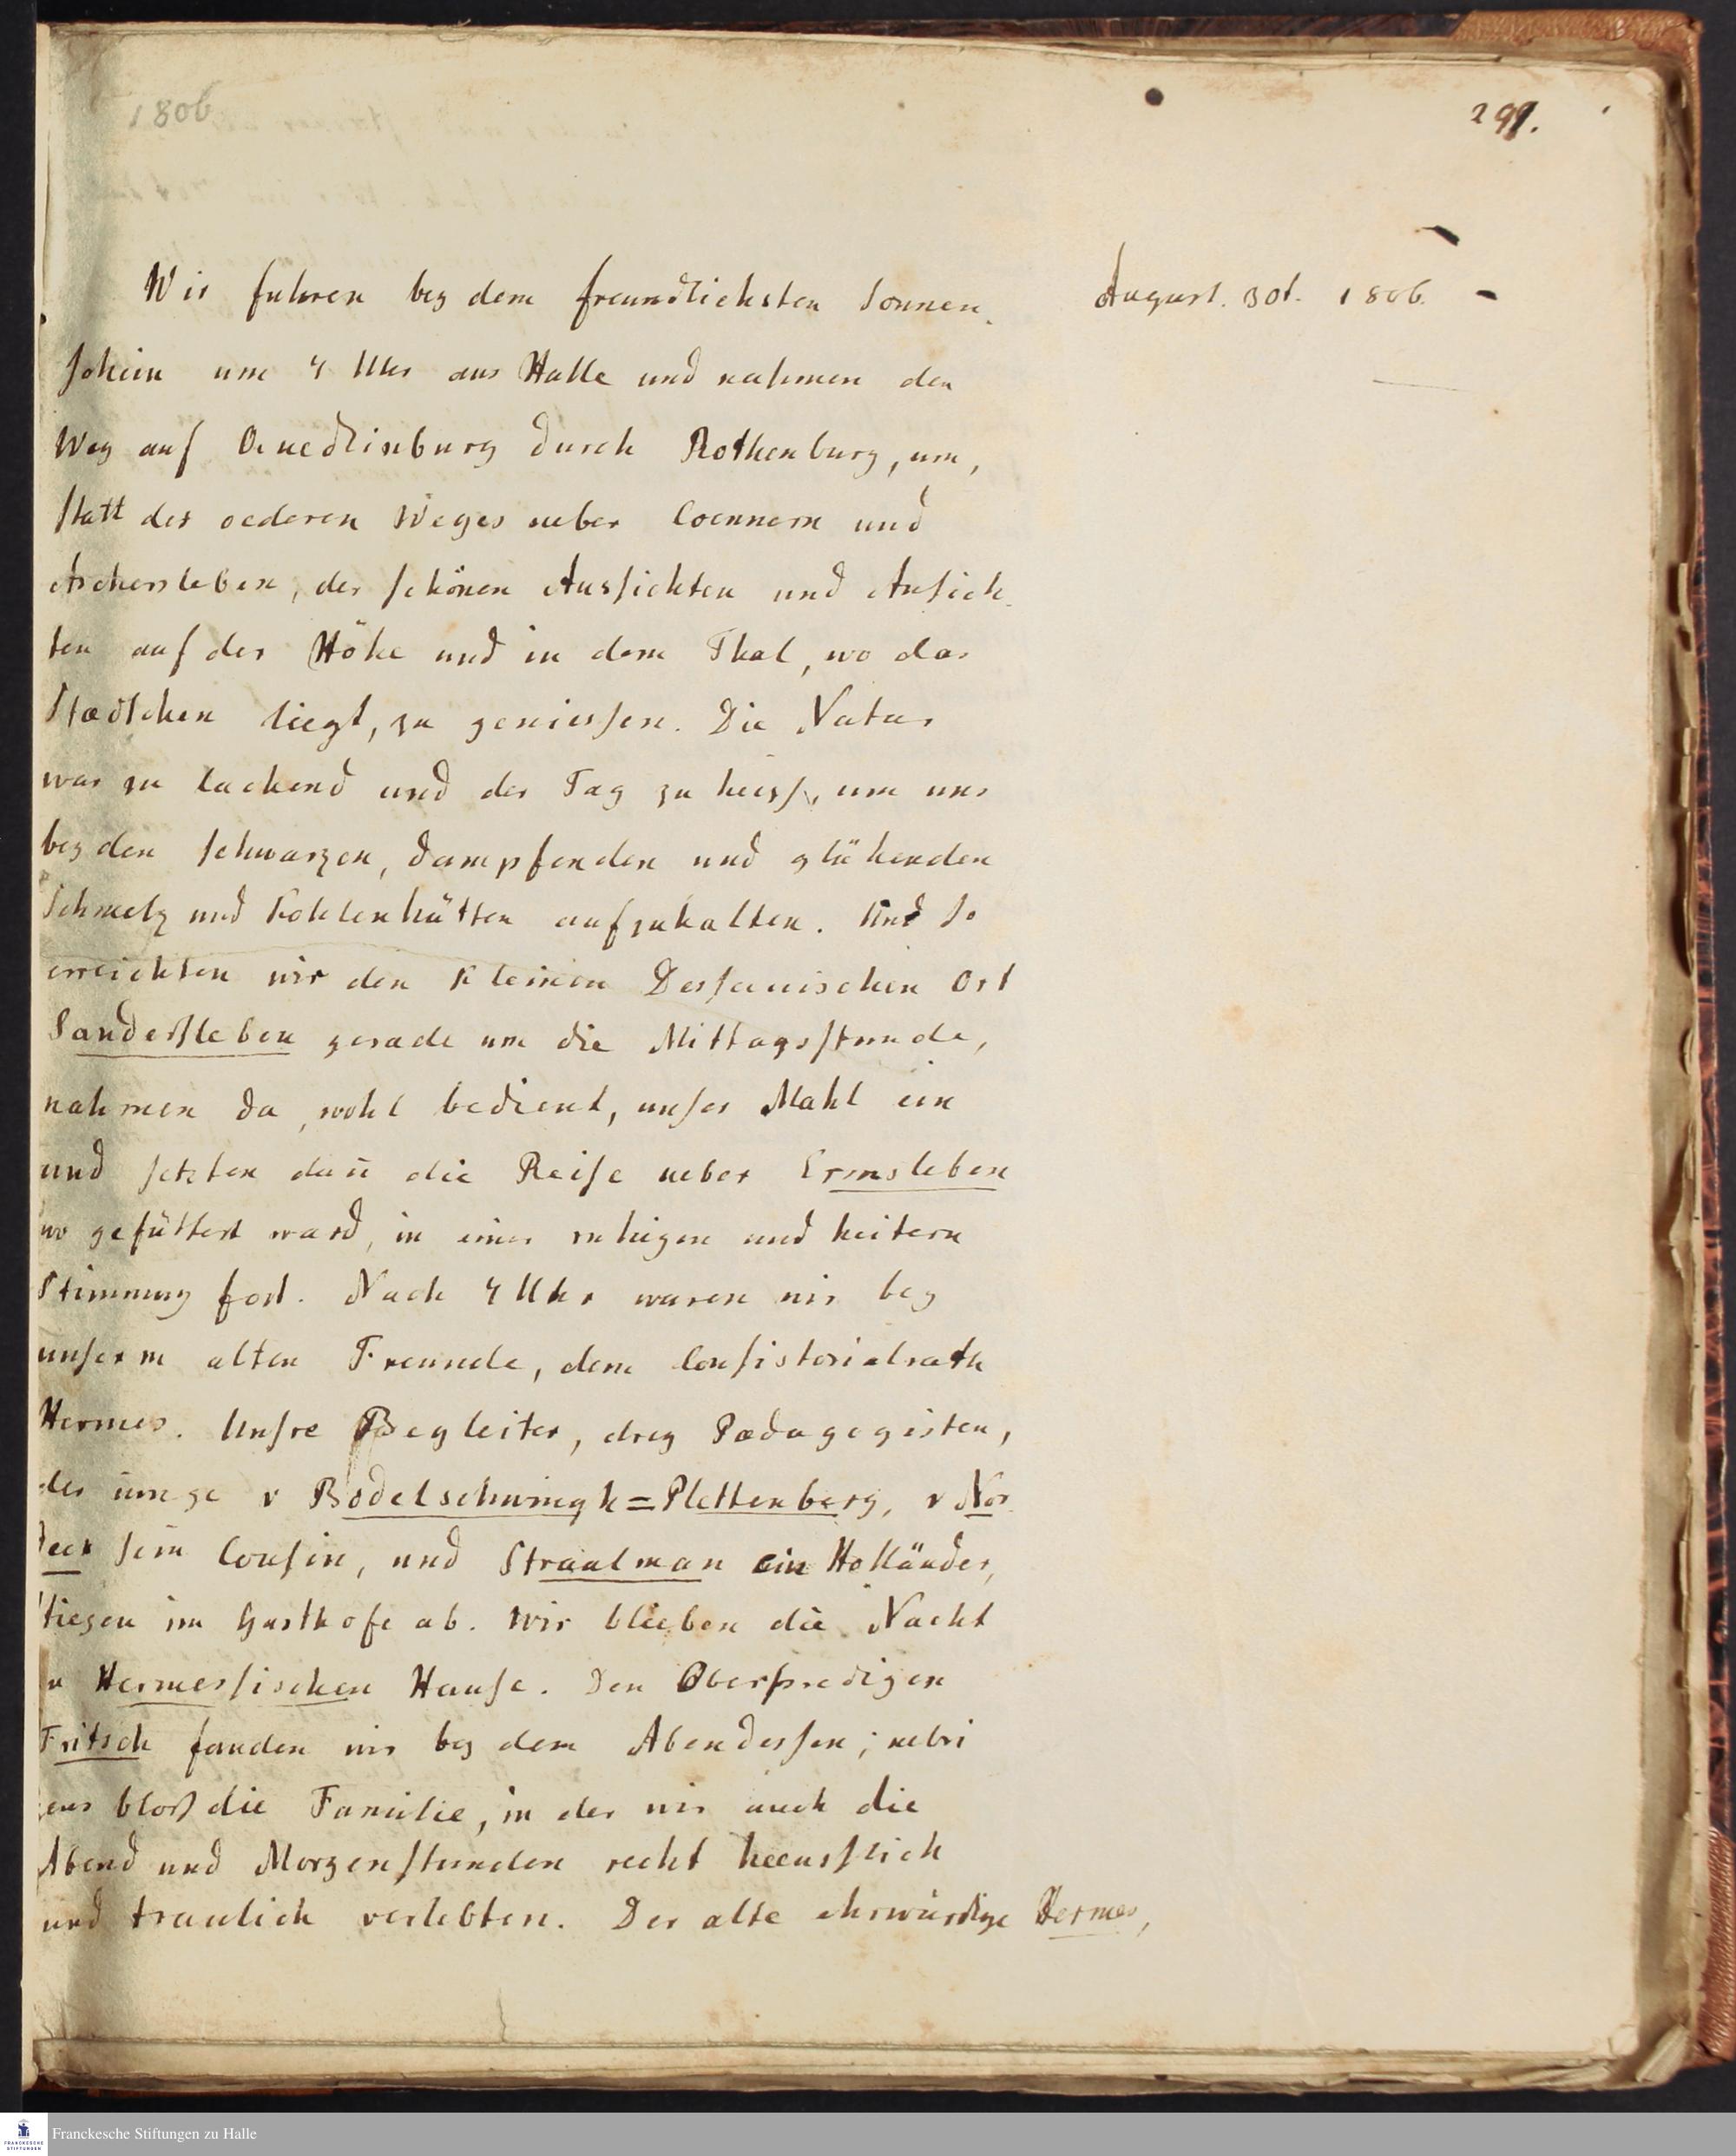 1806
291.
August. 30t. 1806. -
Wir fuhren bey dem freundlichsten Sonnen-
schein um 4 Uhr aus Halle und nahmen den
Weg auf Quedlinburg durch Rothenburg, um,
statt des oederen Weges ueber Coennern und
Aschersleben, der schönen Aussichten und Ansich-
ten auf der Höhe und in dem Thal, wo das
Staedtchen liegt, zu geniessen. Die Natur
war zu lachend und der Tag zu heiss, um uns
bey den schwarzen, dampfenden und glühenden
Schmelz und Kohlenhütten aufzuhalten. Und so
erreichten wir den kleinen Dessauischen Ort
Sandersleben gerade um die Mittagsstunde,
nahmen da, wohl bedient, unser Mahl ein
und setzten dañ die Reise ueber Ermsleben
wo gefüttert ward, in einer ruhigen und heitern
Stimmung fort. Nach 4 Uhr waren wir bey
unserm alten Freunde, dem Consistorialrath
Hermes. Unsre Begleiter, drey Paedagogisten,
der iunge v Bodelschwingh=Plettenberg, v Nor
deck sein Cousin, und Straalman ein Holländer,
stiegen im Gasthofe ab. Wir blieben die Nacht
in Hermessischen Hause. Den Oberpredigen
Fritsch fanden wir bey dem Abendessen; uebri
gens bloß die Familie, in der wir auch die
Abend und Morgenstunden recht haeuslich
und traulich verlebten. Der alte ehrwürdige Hermes,
Franckesche Stiftungen zu Halle